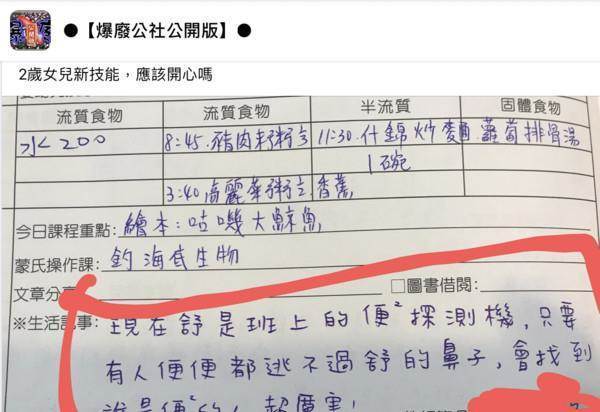 ●【爆廢公社公開版】●
2歲女兒新技能，應該開心嗎
流質食物 流質食物 半流質 固體食物
水 200 8:45. 豬肉粥 11:30. 什錦炒麵 蘿蔔排骨湯
1碗
3:40 高麗菜粥 香蕉
今日課程重點: 繪本:咕嘰大鯨魚
蒙氏操作課: 釣海底生物
文章分享 □圖書借閱:
※生活記事: 現在舒是班上的便²探測機,只要
有人便便都逃不過舒的鼻子,會找到
誰是便²的人,超厲害!